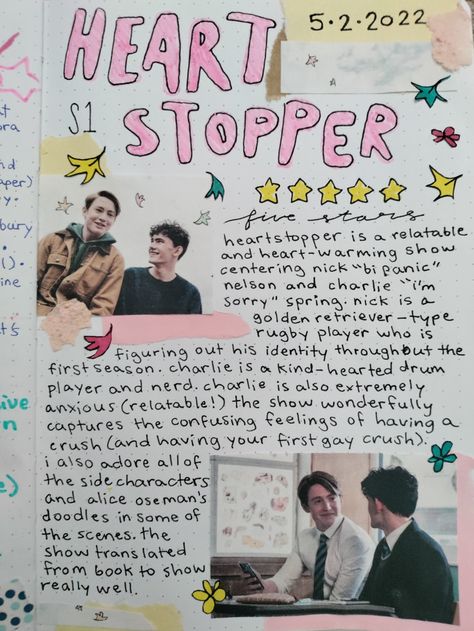 HEART
STOPPER
S1
5.2.2022
five stars
heartstopper is a relatable
and heart-warming show
centering nick "bi panic"
nelson and charlie "i'm
sorry" spring. nick is a
golden retriever-type
rugby player who is
figuring out his identity throughout the
first season. charlie is a kind-hearted drum
player and nerd. charlie is also extremely
anxious (relatable!) the show wonderfully
captures the confusing feelings of having a
crush (and having your first gay crush).
i also adore all of
the side characters
and alice oseman's
doodles in some of
the scenes. the
show translated
from book to show
really well.